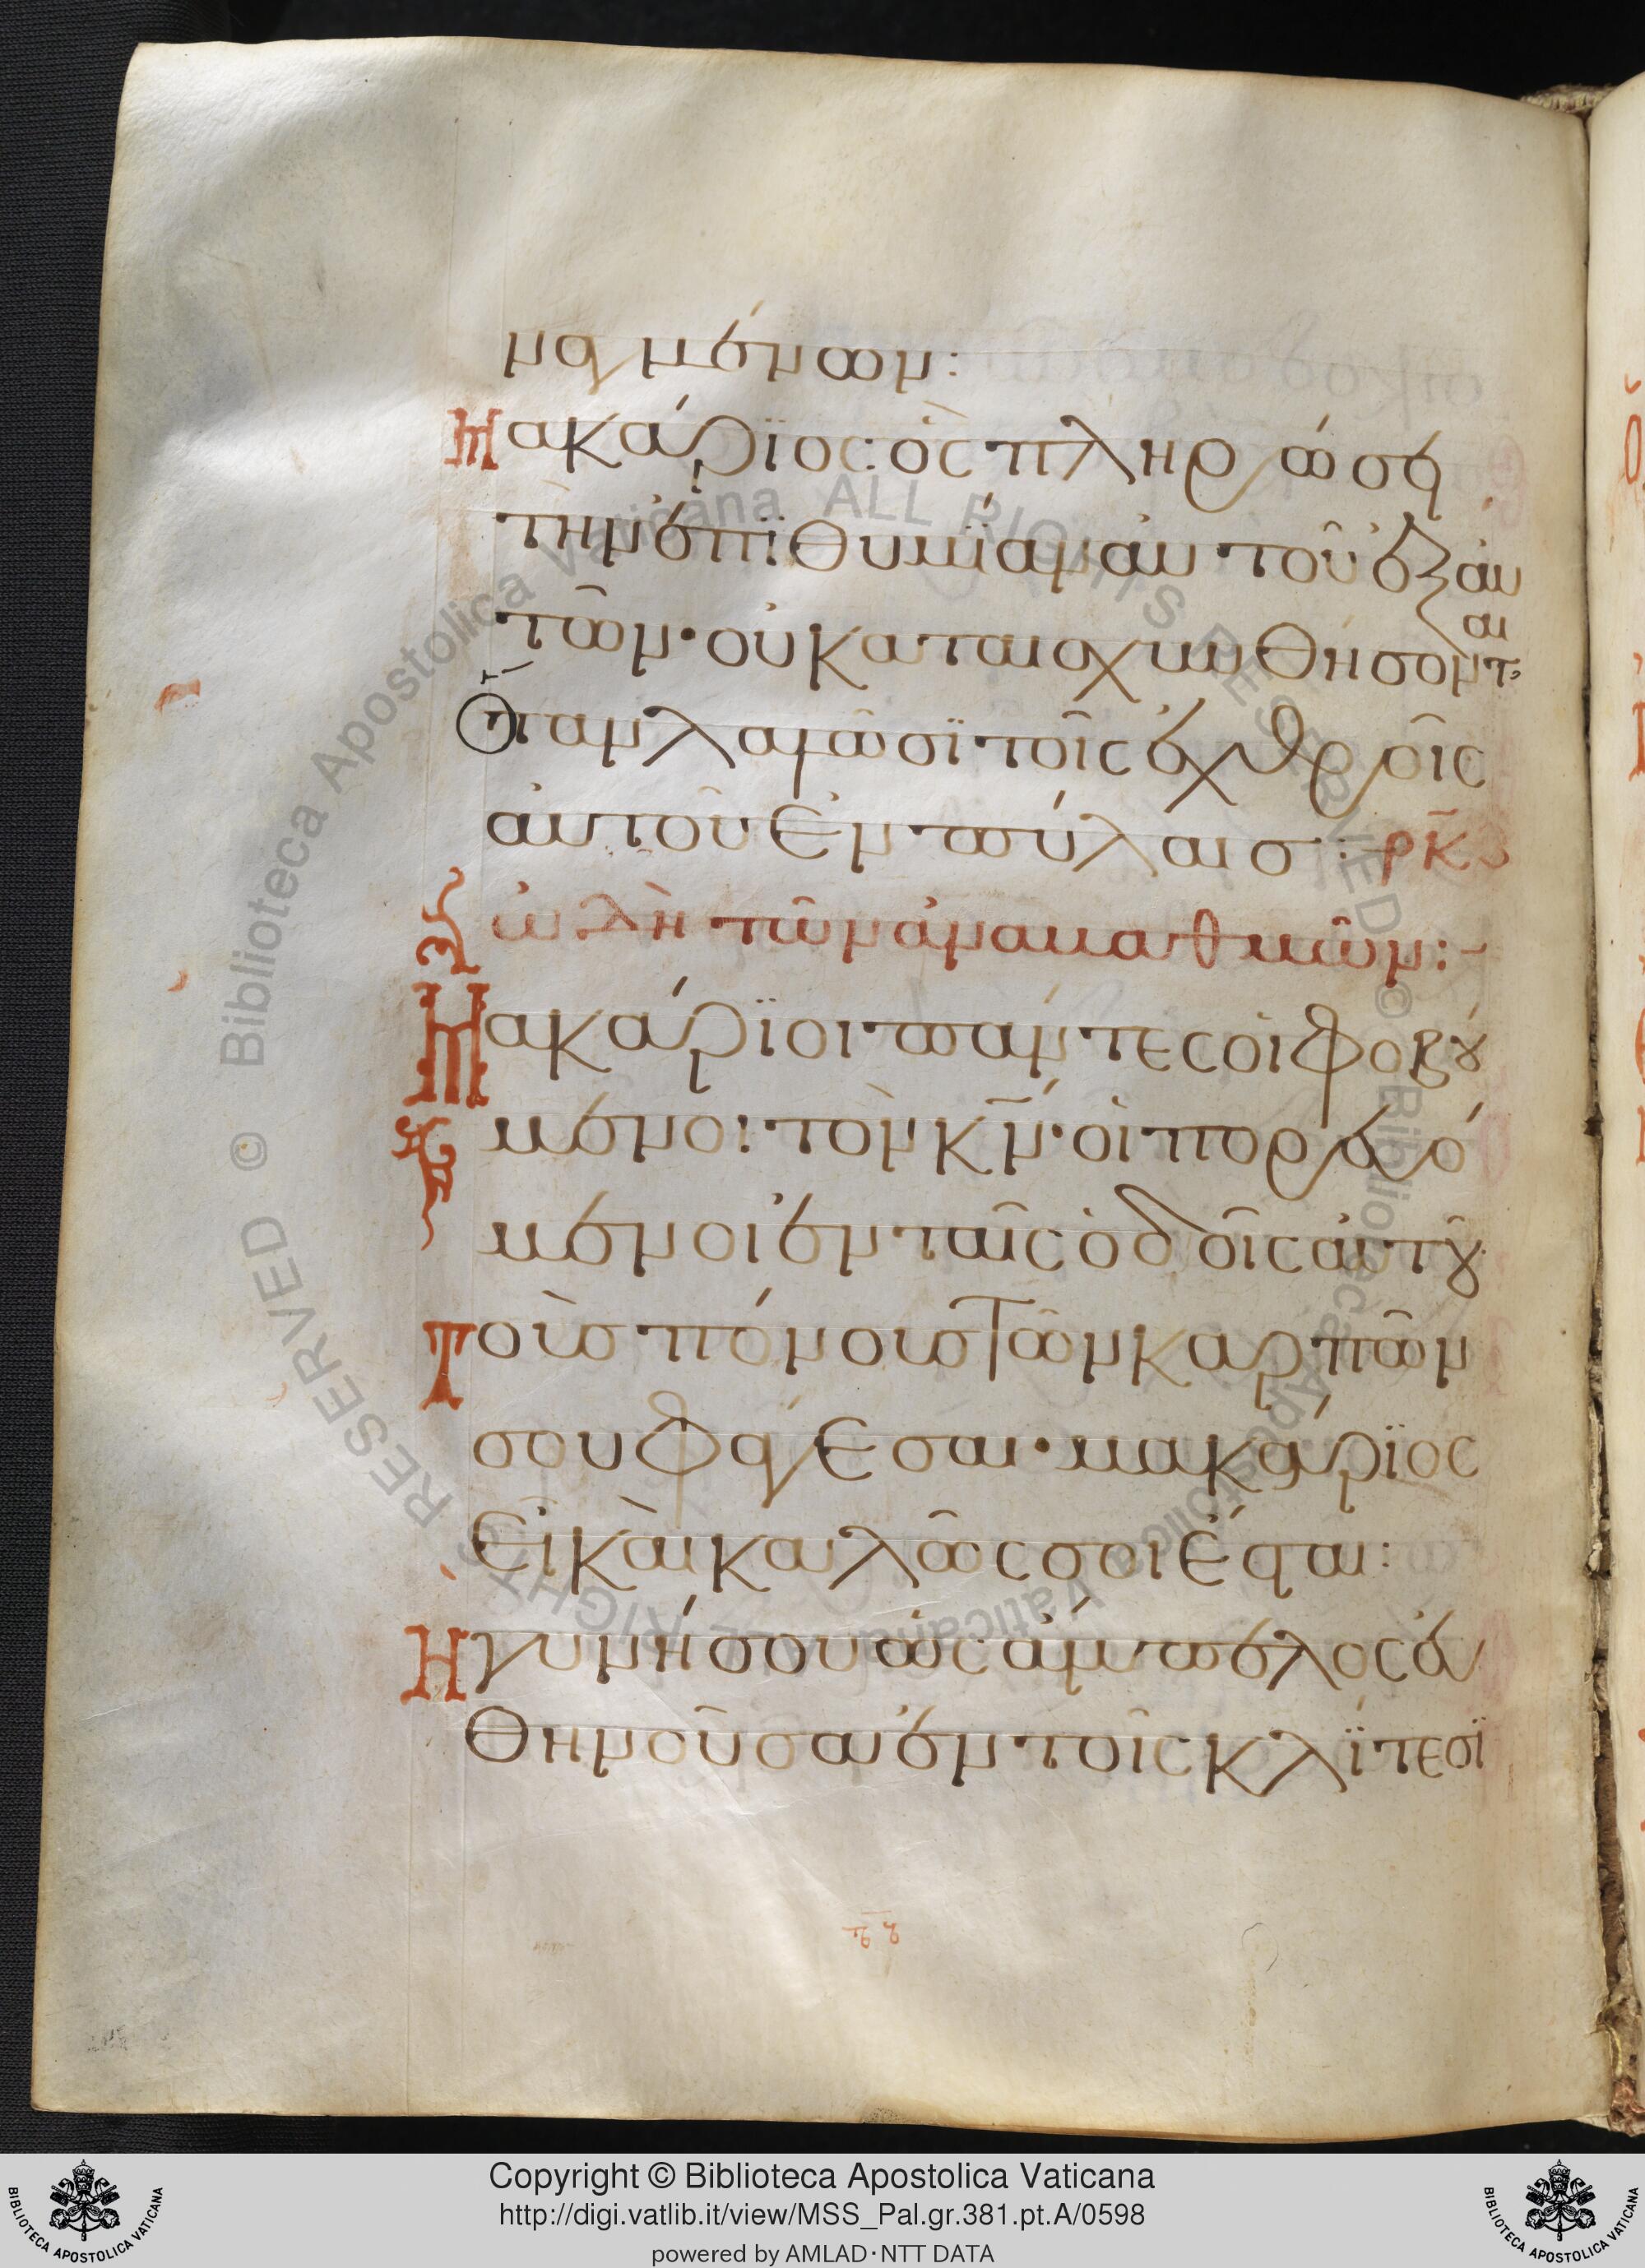 ναγμένων:
Μακάριος· ὃς πληρώσει
τὴν ἐπϊθυμΐαν ἁυτοῦ ἐξ ἁυ
τῶν· οὐ καταισχυνθήσοντ(αι)
Ὅταν λαλῶσϊ τοῖς ἐχθροῖς
ἁυτοῦ ἐν πύλαισ:- ρκζ
ὠιδὴ τῶν ἀναβαθμῶν:-
Μακάρϊοι πάντες οἱ φοβού
μενοι τὸν κν̅· οἱ πορευό
μενοι ἐν ταῖς ὁδοῖς ἀυτοῦ·
Τοὺσ πόνουσ τῶν καρπῶν
σου φάγεσαι· μακάρϊος
εἶ κὰι καλῶς σοι ἔσται:
Ἡ γυνή σου ὡς ἄμπελος ἐυ
θηνοῦσα ἐν τοῖς κλΐτεσϊ
Copyright © Biblioteca Apostolica Vaticana
http://digi.vatlib.it/view/MSS_Pal.gr.381.pt.A/0598
powered by AMLAD·NTT DATA
BIBLIOTECA APOSTOLICA VATICANA
BIBLIOTECA APOSTOLICA VATICANA
© Biblioteca Apostolica Vaticana ALL RIGHTS RESERVED © Biblioteca Apostolica Vaticana ALL RIGHTS RESERVED